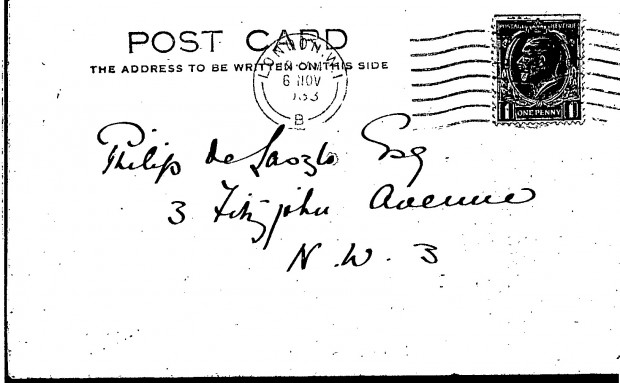 POST CARD
THE ADDRESS TO BE WRITTEN ON THIS SIDE
LONDON.W.1
6 NOV
1933
B
POSTAGE REVENUE
1 ONE PENNY 1
Philip de Laszlo Esq
3 Fitzjohn Avenue
N. W. 3